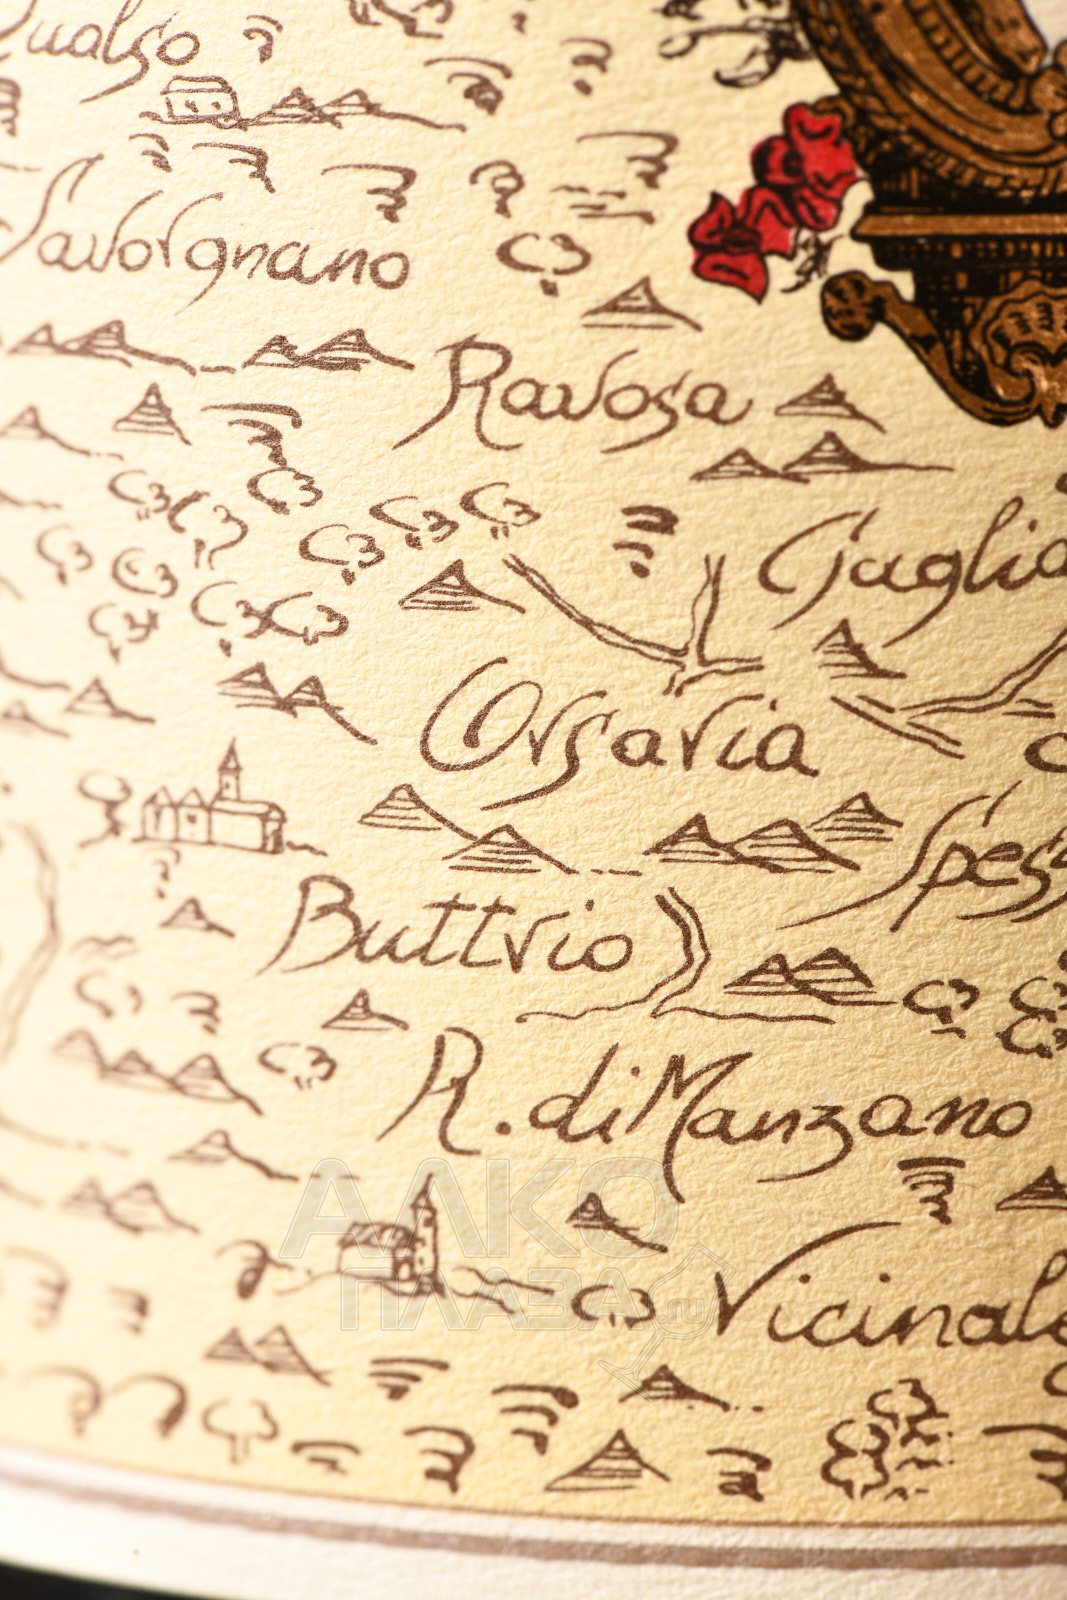 Qualso
Savorgnano
Ravosa
Gaglia
Orsaria
Spess
Buttrio
R. di Manzano
Vicinale
АЛКО
ПЛАЗА.ru